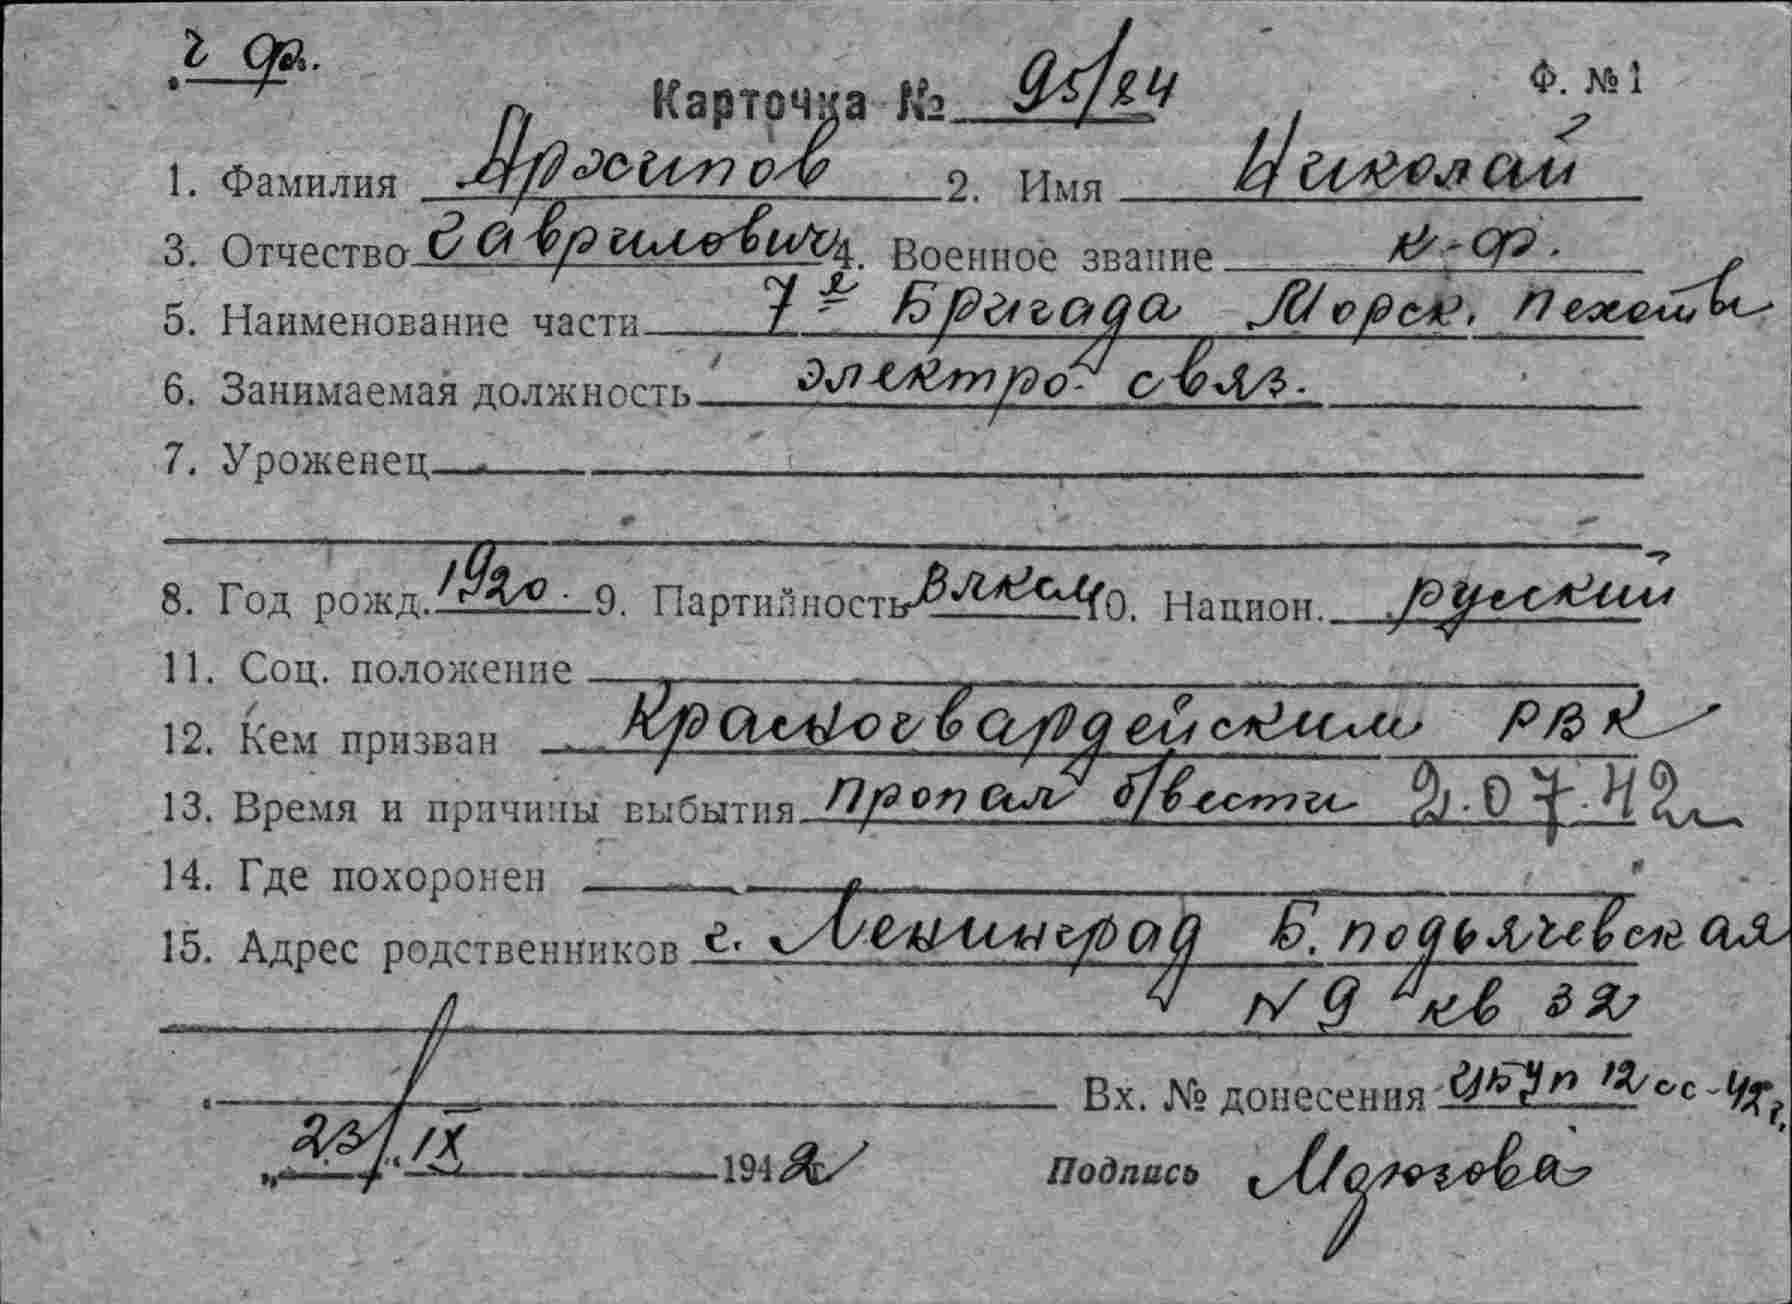 Ф. № 1
Карточка № 95/24
1. Фамилия Архипов 2. Имя Николай
3. Отчество Гаврилович 4. Военное звание к-ф.
5. Наименование части 7я Бригада Морск. пехоты
6. Занимаемая должность электро-связ.
7. Уроженец
8. Год рожд. 1920. 9. Партийность ВЛКСМ 10. Национ. русский
11. Соц. положение
12. Кем призван Красногвардейским РВК
13. Время и причины выбытия пропал б/вести 2.07.42г
14. Где похоронен
15. Адрес родственников г. Ленинград Б. подьячевская
N 9 кв 32
Вх. № донесения 12сс-42г.
„23“ IX 1942
Подпись